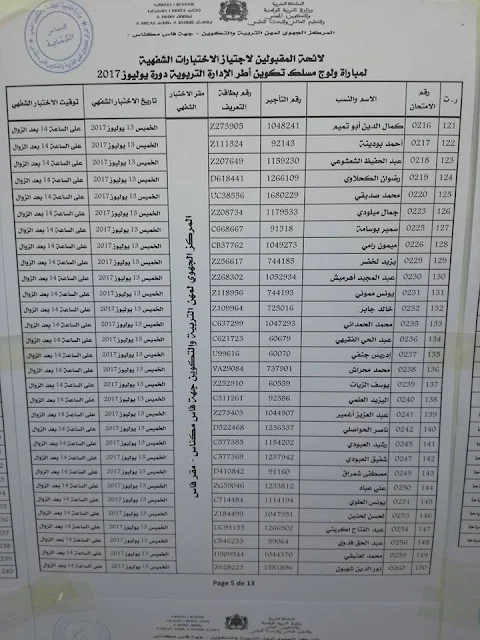 المملكة المغربية
المركز الجهوي لمهن التربية والتكوين - جهة فاس مكناس
لائحة المقبولين لاجتياز الاختبارات الشفهية
لمباراة ولوج مسلك تكوين أطر الإدارة التربوية دورة يوليوز 2017
ر.ت رقم الامتحان الاسم والنسب رقم التأجير رقم بطاقة التعريف مقر الاختبار الشفهي تاريخ الإختبار الشفهي توقيت الاختبار الشفهي
المركز الجهوي لمهن التربية والتكوين جهة فاس مكناس - مقر فاس
121 0216 كمال الدين أبو تميم 1048241 Z273905 الخميس 13 يوليوز 2017 على الساعة 14 بعد الزوال
122 0217 أحمد بودينة 92143 Z111324 الخميس 13 يوليوز 2017 على الساعة 14 بعد الزوال
123 0218 عبد الحفيظ الشعشوعي 1159230 Z207649 الخميس 13 يوليوز 2017 على الساعة 14 بعد الزوال
124 0219 رضوان الكحلاوي 1266109 D618441 الخميس 13 يوليوز 2017 على الساعة 14 بعد الزوال
125 0220 محمد صديقي 1680229 UC38556 الخميس 13 يوليوز 2017 على الساعة 14 بعد الزوال
126 0223 جمال ميلودي 1179533 Z208734 الخميس 13 يوليوز 2017 على الساعة 14 بعد الزوال
127 0225 سمير بوسامة 91318 C668667 الخميس 13 يوليوز 2017 على الساعة 14 بعد الزوال
128 0226 ميمون رامي 1049273 CB37762 الخميس 13 يوليوز 2017 على الساعة 14 بعد الزوال
129 0229 يزيد لخضر 744185 Z256617 الخميس 13 يوليوز 2017 على الساعة 14 بعد الزوال
130 0230 عبد المجيد أهرميش 1052934 Z268302 الخميس 13 يوليوز 2017 على الساعة 14 بعد الزوال
131 0231 يونس مموني 744193 Z118956 الخميس 13 يوليوز 2017 على الساعة 14 بعد الزوال
132 0232 خالد جابر 725016 Z109964 الخميس 13 يوليوز 2017 على الساعة 14 بعد الزوال
133 0235 محمد الحمداني 1047293 C637299 الخميس 13 يوليوز 2017 على الساعة 14 بعد الزوال
134 0236 عبد الحي الفقيهي 60679 C621723 الخميس 13 يوليوز 2017 على الساعة 14 بعد الزوال
135 0237 إدريس جنفي 60070 U99616 الخميس 13 يوليوز 2017 على الساعة 14 بعد الزوال
136 0238 محمد محراش 737901 VA29084 الخميس 13 يوليوز 2017 على الساعة 14 بعد الزوال
137 0239 يوسف الزيات 60559 Z252910 الخميس 13 يوليوز 2017 على الساعة 14 بعد الزوال
138 0240 اليزيد العلمي 92386 C311261 الخميس 13 يوليوز 2017 على الساعة 14 بعد الزوال
139 0241 عبد العزيز أغمير 1044907 Z273403 الخميس 13 يوليوز 2017 على الساعة 14 بعد الزوال
140 0242 ناصر الحواصلي 1236337 D522468 الخميس 13 يوليوز 2017 على الساعة 14 بعد الزوال
141 0245 رشيد العبودي 1154202 C377385 الخميس 13 يوليوز 2017 على الساعة 14 بعد الزوال
142 0247 شفيق العبودي 1237942 C377369 الخميس 13 يوليوز 2017 على الساعة 14 بعد الزوال
143 0249 مصطفى شمراق 91160 D410842 الخميس 13 يوليوز 2017 على الساعة 14 بعد الزوال
144 0250 علي عباد 1233812 ZG39046 الخميس 13 يوليوز 2017 على الساعة 14 بعد الزوال
145 0251 يونس العلوي 1114194 C714484 الخميس 13 يوليوز 2017 على الساعة 14 بعد الزوال
146 0253 الحسن لحنين 1047951 Z184499 الخميس 13 يوليوز 2017 على الساعة 14 بعد الزوال
147 0254 عبد الفتاح اكريني 1266902 UC93155 الخميس 13 يوليوز 2017 على الساعة 14 بعد الزوال
148 0256 عبد الحق قدوي 59064 CB46255 الخميس 13 يوليوز 2017 على الساعة 14 بعد الزوال
149 0259 محمد لعنيقي 1044370 D509544 الخميس 13 يوليوز 2017 على الساعة 14 بعد الزوال
150 0260 نور الدين شهبون 1381896 Z628223 الخميس 13 يوليوز 2017 على الساعة 14 بعد الزوال
Page 5 de 13